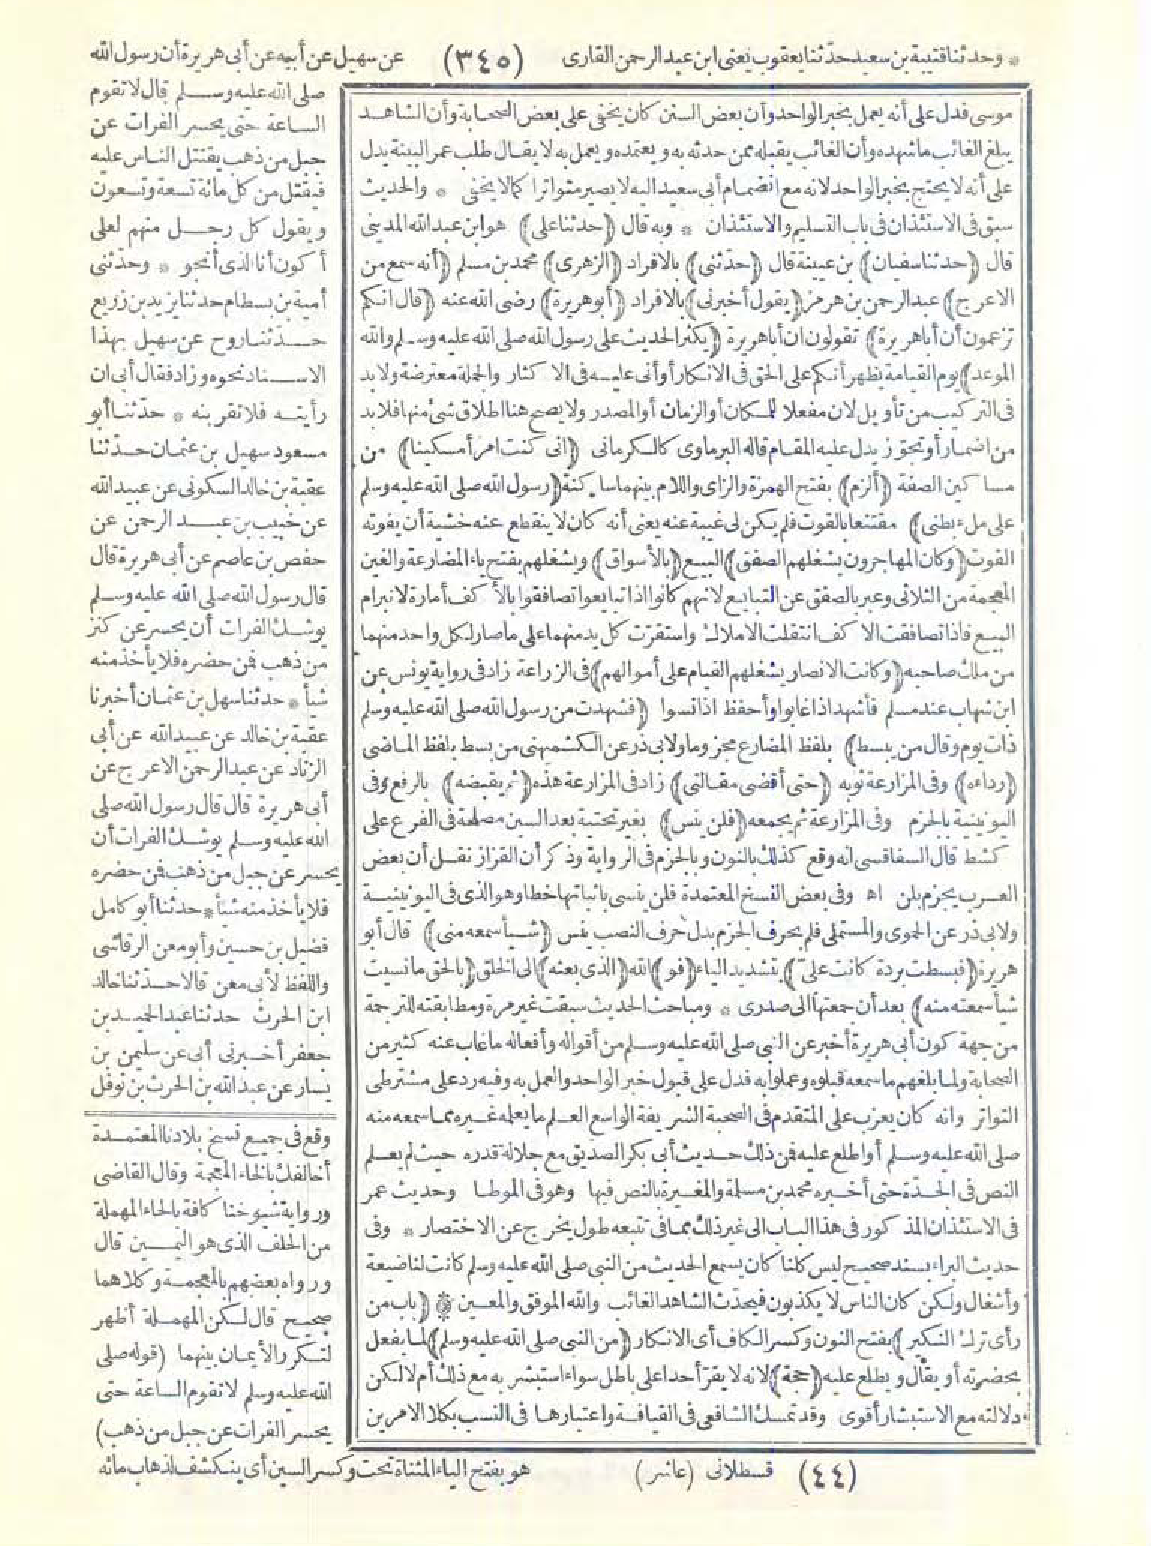 * وحدثنا قتيبة بن سعيد حدثنا يعقوب يعنى ابن عبد الرحمن القارى (٣٤٥) عن سهيل عن أبيه عن أبى هريرة أن رسول الله
صلى الله عليه وسلم قال لا تقوم
الساعة حتى يحسر الفرات عن
جبل من ذهب يقتتل الناس عليه
فيقتل من كل مائة تسعة وتسعون
ويقول كل رجل منهم لعلى
أكون أنا الذى أنجو * وحدثنى
أمية بن بسطام حدثنا يزيد بن زريع
حدثنا روح عن سهيل بهذا
الاسناد نحوه وزاد فقال أبى ان
رأيته فلا تقربنه * حدثنا أبو
مسعود سهيل بن عثمان حدثنا
عقبة بن خالد السكونى عن عبيد الله
عن خبيب بن عبد الرحمن عن
حفص بن عاصم عن أبى هريرة قال
قال رسول الله صلى الله عليه وسلم
يوشك الفرات أن يحسر عن كنز
من ذهب فمن حضره فلا يأخذ منه
شيأ * حدثنا سهل بن عثمان أخبرنا
عقبة بن خالد عن عبيد الله عن أبى
الزناد عن عبد الرحمن الاعرج عن
أبى هريرة قال قال رسول الله صلى
الله عليه وسلم يوشك الفرات أن
يحسر عن جبل من ذهب فمن حضره
فلا يأخذ منه شيأ * حدثنا أبو كامل
فضيل بن حسين وأبو معن الرقاشى
واللفظ لأبى معن قالا حدثنا خالد
ابن الحرث حدثنا عبد الحميد بن
جعفر أخبرنى أبى عن سليمن بن
يسار عن عبد الله بن الحرث بن نوفل
موسى فدل على أنه يعمل بخبر الواحد وأن بعض السنن كان يخفى على بعض الصحابة وأن الشاهد
يبلغ الغائب ما شهده وأن الغائب يقبله ممن حدثه به ويعتمده ويعمل به لا يقال طلب عمر البينة يدل
على أنه لا يحتج بخبر الواحد لانه مع انضمام أبى سعيد اليه لا يصير متواترا كما لا يخفى * والحديث
سبق فى الاستئذان فى باب التسليم والاستئذان * وبه قال (حدثنا على) هو ابن عبد الله المدينى
قال (حدثنا سفيان) بن عيينة قال (حدثنى) بالافراد (الزهرى) محمد بن مسلم (أنه سمع من
الاعرج) عبد الرحمن بن هرمز (يقول أخبرنى) بالافراد (أبو هريرة) رضى الله عنه (قال انكم
تزعمون أن أبا هريرة) تقولون ان أبا هريرة (يكثر الحديث على رسول الله صلى الله عليه وسلم والله
الموعد) يوم القيامة يظهر أنكم على الحق فى الانكار أو أنى عليه فى الاكثار والجملة معترضة ولا بد
فى التركيب من تأويل لان مفعلا للمكان أو الزمان أو المصدر ولا يصح هنا اطلاق شئ منها فلا بد
من اضمار أو تجوز يدل عليه المقام قاله البرماوى كالكرمانى (انى كنت امرأ مسكينا) من
مساكين الصفة (ألزم) بفتح الهمزة والزاى واللام بينهما ساكنة (رسول الله صلى الله عليه وسلم
على ملء بطنى) مقتنعا بالقوت فلم يكن لى غيبة عنه يعنى أنه كان لا ينقطع عنه خشية أن يفوته
القوت (وكان المهاجرون يشغلهم الصفق) البيع (بالأسواق) ويشغلهم بفتح ياء المضارعة والغين
المعجمة من الثلاثى وعبر بالصفق عن التبايع لانهم كانوا اذا تبايعوا تصافقوا بالأكف أمارة لانبرام
البيع فاذا تصافقت الاكف انتقلت الاملاك واستقرت كل يد منهما على ما صار لكل واحد منهما
من ملك صاحبه (وكانت الانصار يشغلهم القيام على أموالهم) فى الزراعة زاد فى رواية يونس عن
ابن شهاب عند مسلم فأشهد اذا غابوا وأحفظ اذا نسوا (فشهدت من رسول الله صلى الله عليه وسلم
ذات يوم وقال من يبسط) بلفظ المضارع مجزوما ولابى ذر عن الكشميهنى من بسط بلفظ الماضى
(رداءه) وفى المزارعة ثوبه (حتى أقضى مقالتى) زاد فى المزارعة هذه (ثم يقبضه) بالرفع وفى
اليونينية بالجزم وفى المزارعة ثم يجمعه (فلن ينس) بغير تحتية بعد السين مصلحة فى الفرع على
كشط قال السفاقسى انه وقع كذلك بالنون وبالجزم فى الرواية وذكر أن القزاز نقل أن بعض
العرب يجزم بلن اه وفى بعض النسخ المعتمدة فلن ينسى باثباتها خطا وهو الذى فى اليونينية
ولابى ذر عن الحموى والمستملى فلم بحرف الجزم بدل حرف النصب ينس (شيأ سمعه منى) قال أبو
هريرة (فبسطت بردة كانت على) بتشديد الياء (فو) الله (الذى بعثه) الى الخلق (بالحق ما نسيت
شيأ سمعته منه) بعد أن جمعتها الى صدرى * ومباحث الحديث سبقت غير مرة ومطابقته للترجمة
من جهة كون أبى هريرة أخبر عن النبى صلى الله عليه وسلم من أقواله وأفعاله ما غاب عنه كثير من
الصحابة ولما بلغهم ما سمعه قبلوه وعملوا به فدل على قبول خبر الواحد والعمل به وفيه رد على مشترطى
التواتر وانه كان يعزب على المتقدم فى الصحبة الشريفة الواسع العلم ما يعلمه غيره مما سمعه منه
صلى الله عليه وسلم أو اطلع عليه فمن ذلك حديث أبى بكر الصديق مع جلالة قدره حيث لم يعلم
النص فى الجدة حتى أخبره محمد بن مسلمة والمغيرة بالنص فيها وهو فى الموطا وحديث عمر
فى الاستئذان المذكور فى هذا الباب الى غير ذلك مما فى تتبعه طول يخرج عن الاختصار * وفى
حديث البراء بسند صحيح ليس كلنا كان يسمع الحديث من النبى صلى الله عليه وسلم كانت لنا ضيعة
وأشغال ولكن كان الناس لا يكذبون فيحدث الشاهد الغائب والله الموفق والمعين * (باب من
رأى ترك النكير) بفتح النون وكسر الكاف أى الانكار (من النبى صلى الله عليه وسلم) لما يفعل
بحضرته أو يقال ويطلع عليه (حجة) لانه لا يقر أحدا على باطل سواء استبشر به مع ذلك أم لا لكن
دلالته مع الاستبشار أقوى وقد تمسك الشافعى فى القيافة واعتبارها فى النسب بكلا الامرين
وقع فى جميع نسخ بلادنا المعتمدة
أخالفك بالخاء المعجمة وقال القاضى
ورواية شيوخنا كافة بالحاء المهملة
من الحلف الذى هو اليمين قال
ورواه بعضهم بالمعجمة وكلاهما
صحيح قال لكن المهملة أظهر
لتكرر الأيمان بينهما (قوله صلى
الله عليه وسلم لا تقوم الساعة حتى
يحسر الفرات عن جبل من ذهب)
هو بفتح الياء المثناة تحت وكسر السين أى ينكشف لذهاب مائه
(٤٤) قسطلانى (عاشر)